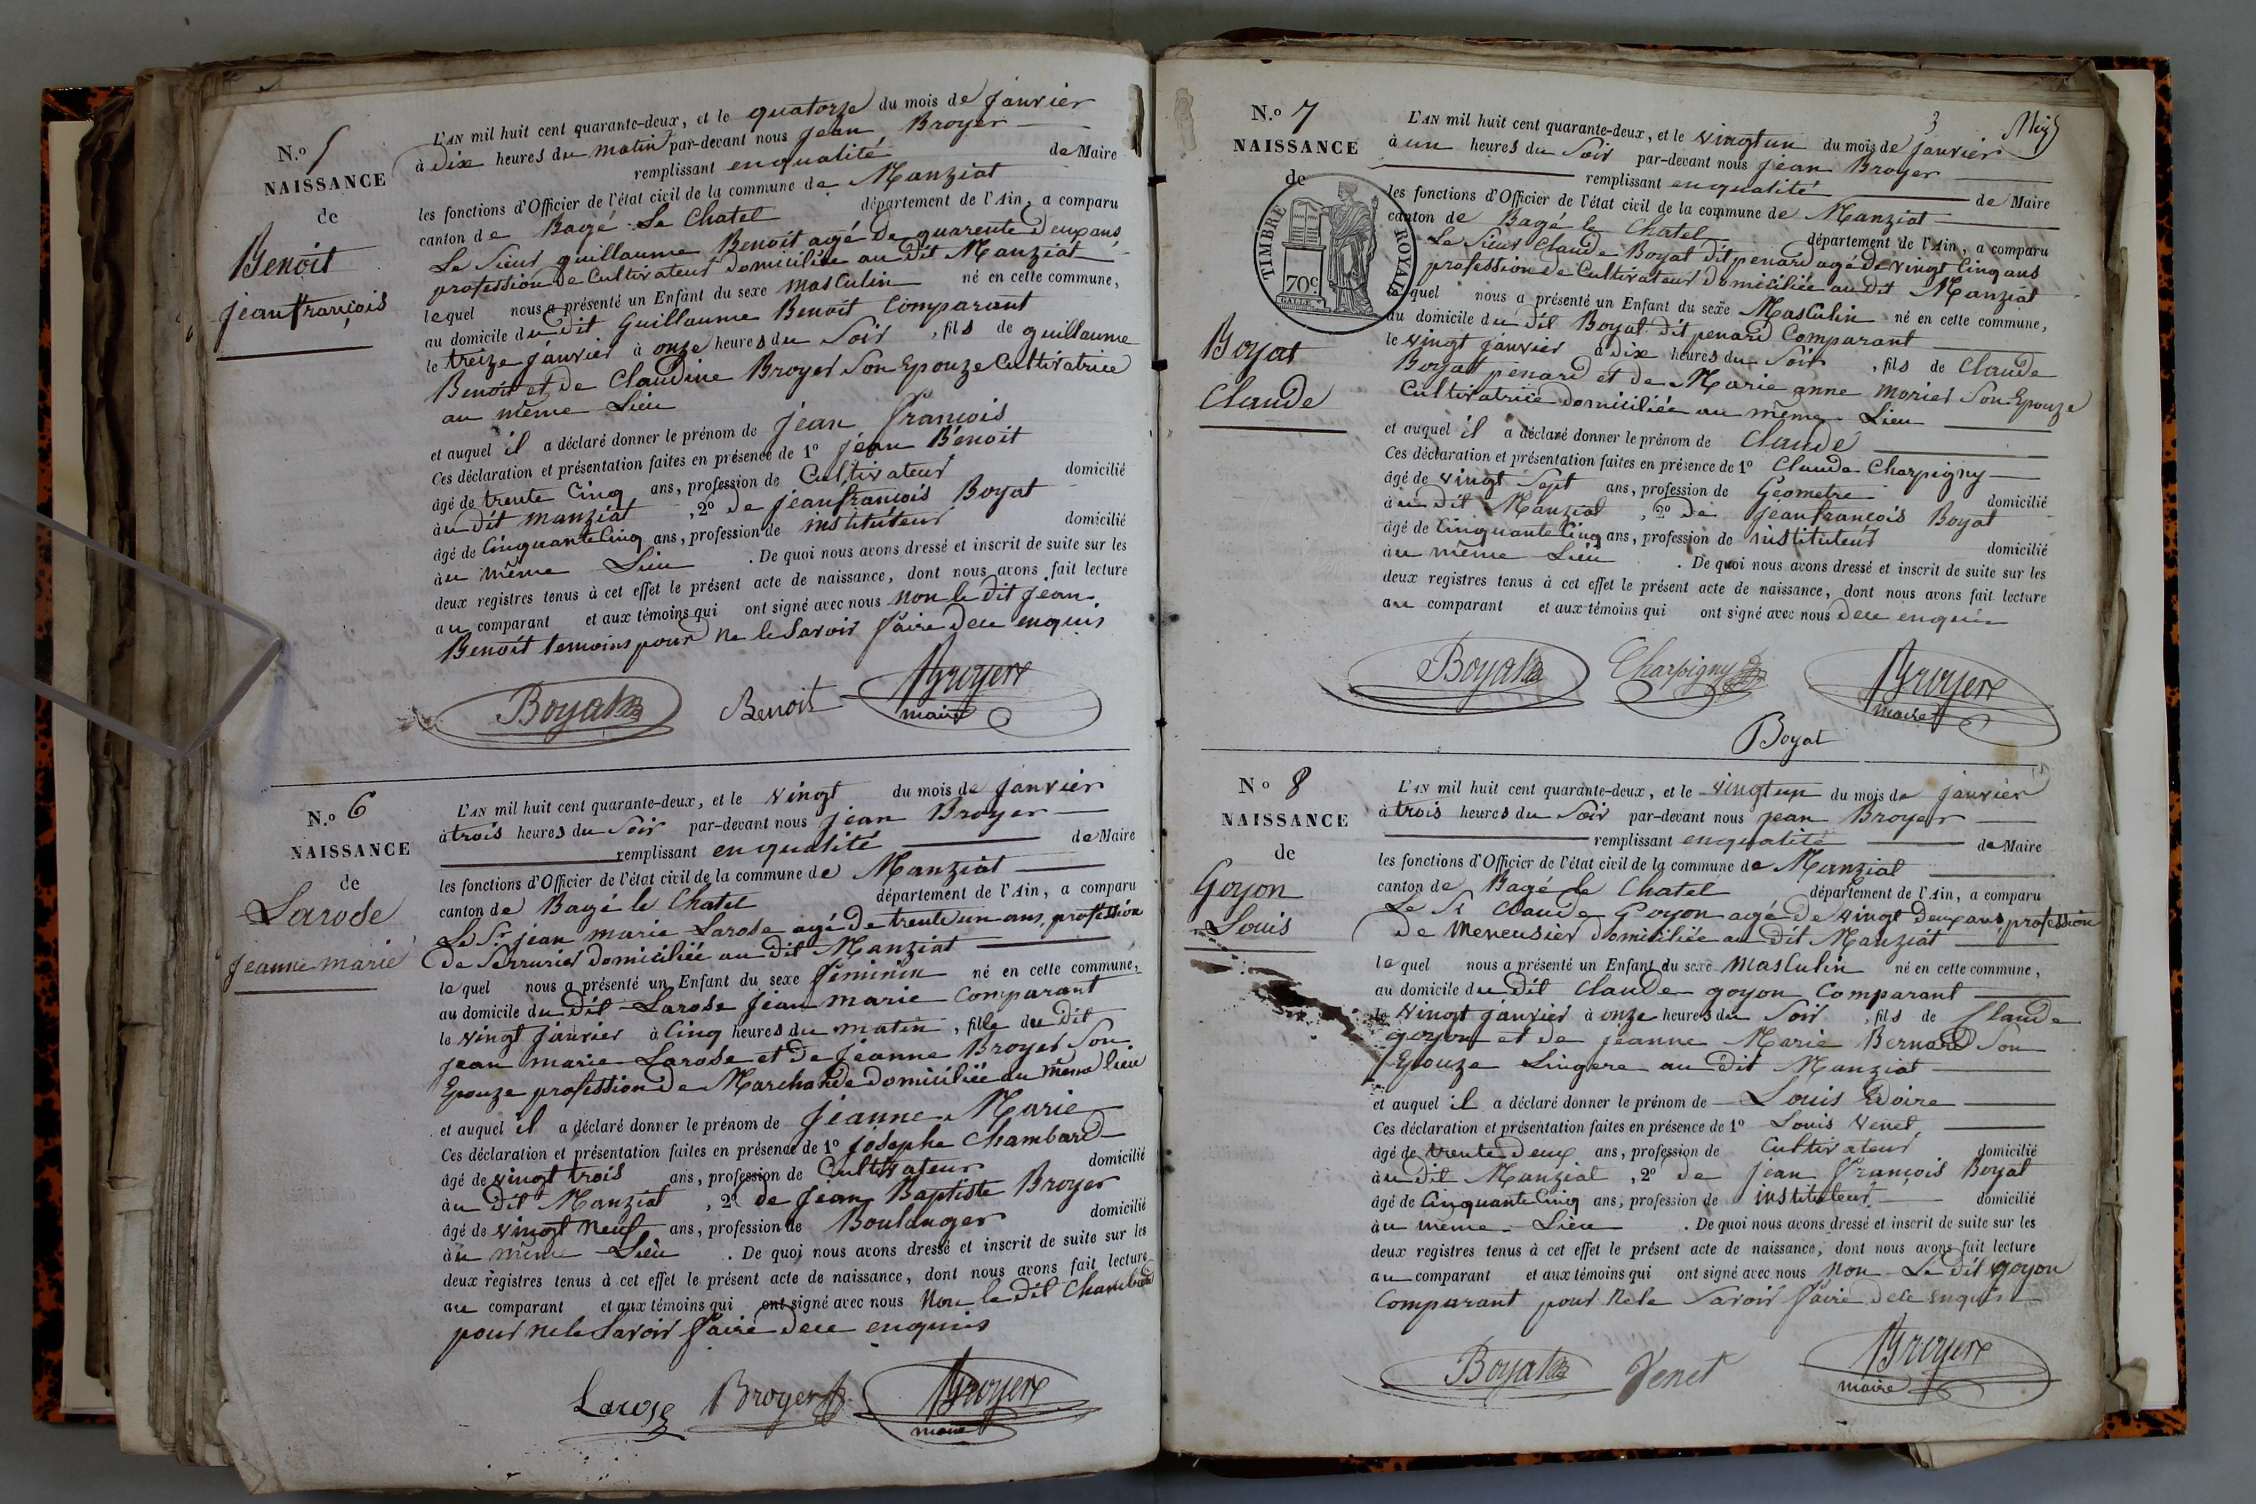 N.o 5
NAISSANCE
de
Benoit
jean françois
L'AN mil huit cent quarante-deux, et le quatorze du mois de janvier
à dix heures du matin par-devant nous jean Broyer
remplissant en qualité de Maire
les fonctions d'Officier de l'état civil de la commune de Manziat
canton de Bagé Le Chatel département de l'Ain, a comparu
Le Sieur guillaume Benoit agé de quarente deux ans
profession de Cultivateur domiciliée au dit Manziat
lequel nous a présenté un Enfant du sexe masculin né en cette commune,
au domicile du dit Guillaume Benoit Comparant
le treize janvier à onze heures du Soir, fils de guillaume
Benoit et de Claudine Broyer Son Epouze Cultivatrice
au même Lieu
et auquel il a déclaré donner le prénom de jean françois
Ces déclaration et présentation faites en présence de 1o jean Benoit
âgé de trente Cinq ans, profession de Cultivateur domicilié
au dit manziat, 2o de jean françois Boyat
âgé de Cinquante Cinq ans, profession de instituteur domicilié
au même Lieu. De quoi nous avons dressé et inscrit de suite sur les
deux registres tenus à cet effet le présent acte de naissance, dont nous avons fait lecture
au comparant et aux témoins qui ont signé avec nous non le dit jean
Benoit temoins pour ne le Savoir faire dece enquis
Boyat Benoit Broyer
maire
N.o 6
NAISSANCE
de
Larose
jeanne marie
L'AN mil huit cent quarante-deux, et le vingt du mois de janvier
à trois heures du Soir par-devant nous jean Broyer
remplissant en qualité de Maire
les fonctions d'Officier de l'état civil de la commune de Manziat
canton de Bagé le Chatel département de l'Ain, a comparu
Le Sr jean marie Larose agé de trente un ans, profession
de Serrurier domiciliée au dit Manziat
lequel nous a présenté un Enfant du sexe féminin né en cette commune,
au domicile du dit Larose jean marie Comparant
le vingt janvier à Cinq heures du matin, fille du dit
jean marie Larose et de jeanne Broyer Son
Epouze profession de Marchande domiciliée au même lieu
et auquel il a déclaré donner le prénom de jeanne Marie
Ces déclaration et présentation faites en présence de 1o josephe Chambard
âgé de vingt trois ans, profession de Cultivateur domicilié
au dit Manziat, 2o de jean Baptiste Broyer
âgé de vingt neuf ans, profession de Boulanger domicilié
au même Lieu. De quoi nous avons dressé et inscrit de suite sur les
deux registres tenus à cet effet le présent acte de naissance, dont nous avons fait lecture
au comparant et aux témoins qui ont signé avec nous Non le dit Chambard
pour ne le Savoir faire dece enquis
Larose Broyer Broyer
maire
3
N.o 7
NAISSANCE
de
TIMBRE ROYAL
70c
Boyat
Claude
L'AN mil huit cent quarante-deux, et le vingt un du mois de janvier
à un heures du Soir par-devant nous jean Broyer
remplissant en qualité de Maire
les fonctions d'Officier de l'état civil de la commune de Manziat
canton de Bagé le Chatel département de l'Ain, a comparu
Le Sieur Claude Boyat dit penard agé de vingt Cinq ans
profession de Cultivateur domiciliée au dit Manziat
lequel nous a présenté un Enfant du sexe Masculin né en cette commune,
au domicile du dit Boyat dit penard Comparant
le vingt janvier à dix heures du Soir, fils de Claude
Boyat penard et de Marie anne morier Son Epouze
Cultivatrice domiciliée au même Lieu
et auquel il a déclaré donner le prénom de Claude
Ces déclaration et présentation faites en présence de 1o Claude Charpigny
âgé de vingt Sept ans, profession de Géometre domicilié
au dit Manziat, 2o de jean françois Boyat
âgé de Cinquante Cinq ans, profession de instituteur domicilié
au même Lieu. De quoi nous avons dressé et inscrit de suite sur les
deux registres tenus à cet effet le présent acte de naissance, dont nous avons fait lecture
au comparant et aux témoins qui ont signé avec nous dece enquis
Boyat Charpigny Broyer
maire
Boyat
No 8
NAISSANCE
de
Goyon
Louis
L'AN mil huit cent quarante-deux, et le vingt un du mois de janvier
à trois heures du Soir par-devant nous jean Broyer
remplissant en qualité de Maire
les fonctions d'Officier de l'état civil de la commune de Manziat
canton de Bagé le Chatel département de l'Ain, a comparu
Le Sr Claude Goyon agé de vingt deux ans, profession
de Meneusier domiciliée au dit Manziat
lequel nous a présenté un Enfant du sexe masculin né en cette commune,
au domicile du dit Claude goyon Comparant
le vingt janvier à onze heures du Soir, fils de Claude
goyon et de jeanne Marie Bernard Son
Epouze Lingere au dit Manziat
et auquel il a déclaré donner le prénom de Louis
Ces déclaration et présentation faites en présence de 1o Louis Venet
âgé de trente deux ans, profession de Cultivateur domicilié
au dit Manziat, 2o de jean françois Boyat
âgé de Cinquante Cinq ans, profession de instituteur domicilié
au même Lieu. De quoi nous avons dressé et inscrit de suite sur les
deux registres tenus à cet effet le présent acte de naissance, dont nous avons fait lecture
au comparant et aux témoins qui ont signé avec nous Non Le dit goyon
Comparant pour ne le Savoir faire dece enquis
Boyat Venet Broyer
maire